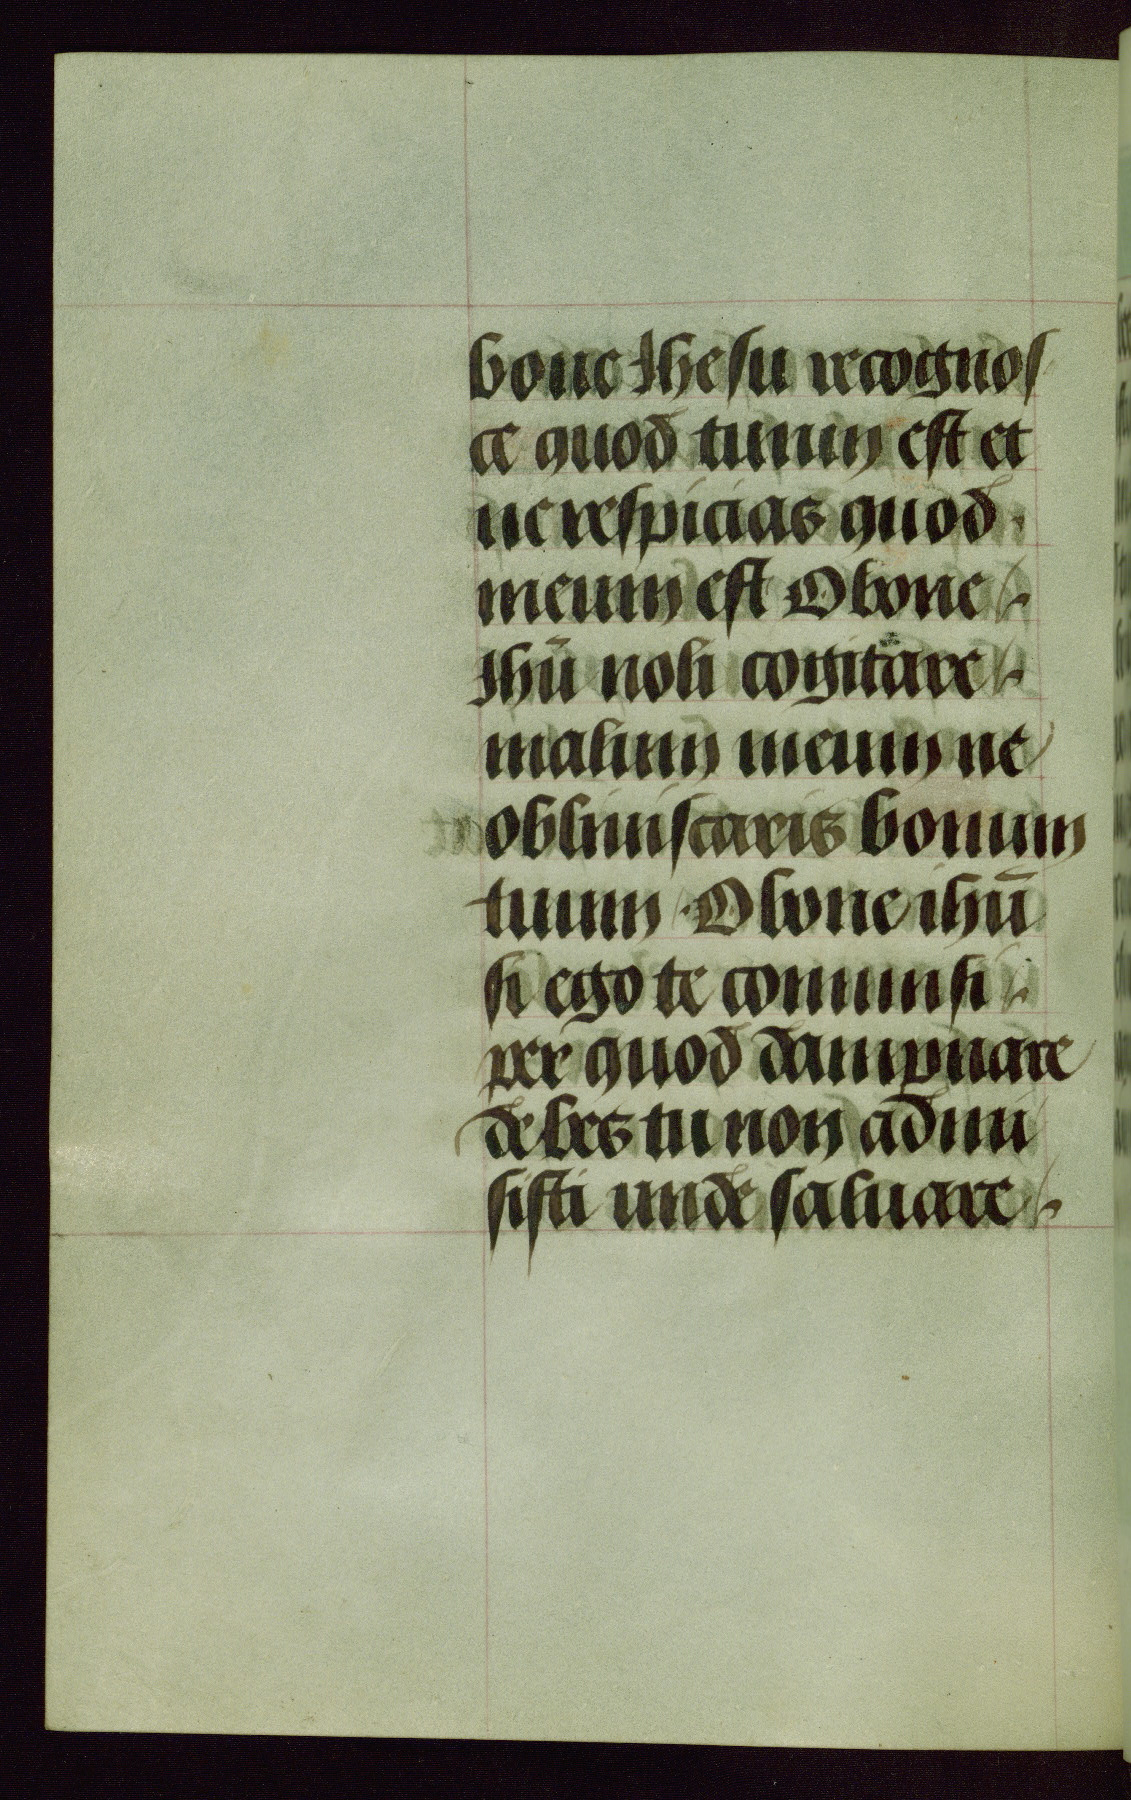 bone Ihesu recognos
ce quod tuum est et
ne respicias quod
meum est O bone
Ihū noli cogitare
malum meum ne
obliuiscaris bonum
tuum · O bone ihū
si ego te commisi
per quod dampnare
debes tu non admi
sisti unde saluare